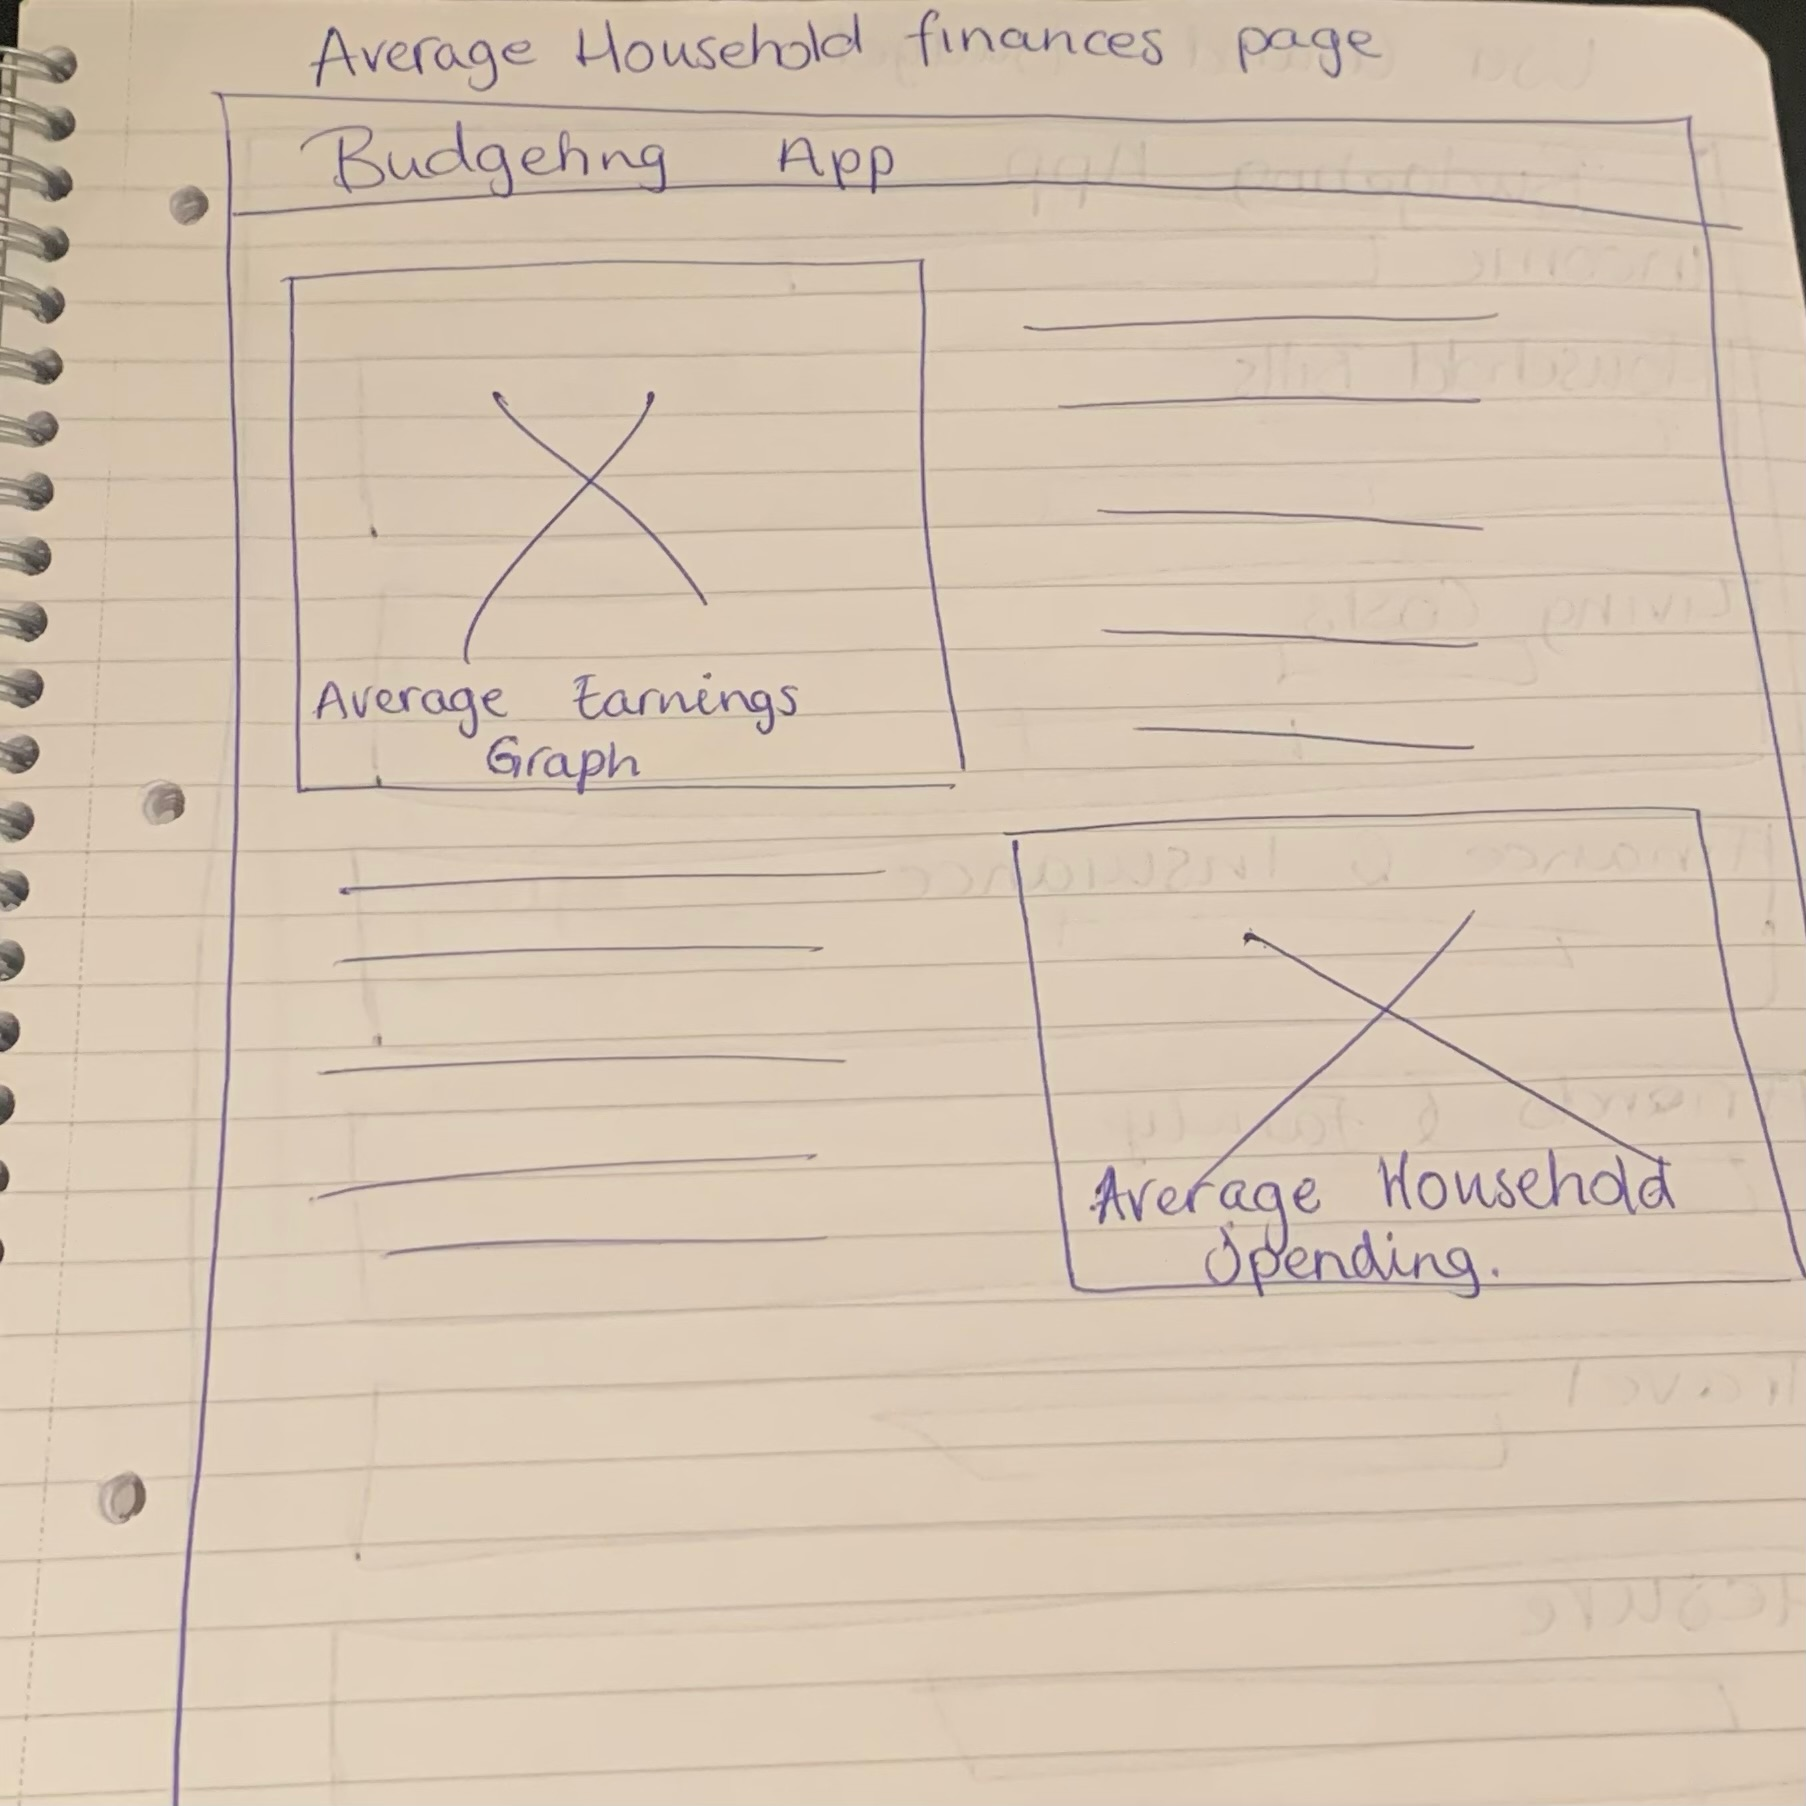 Average Household finances page
Budgeting App
Average Earnings
Graph
Average Household
Spending.